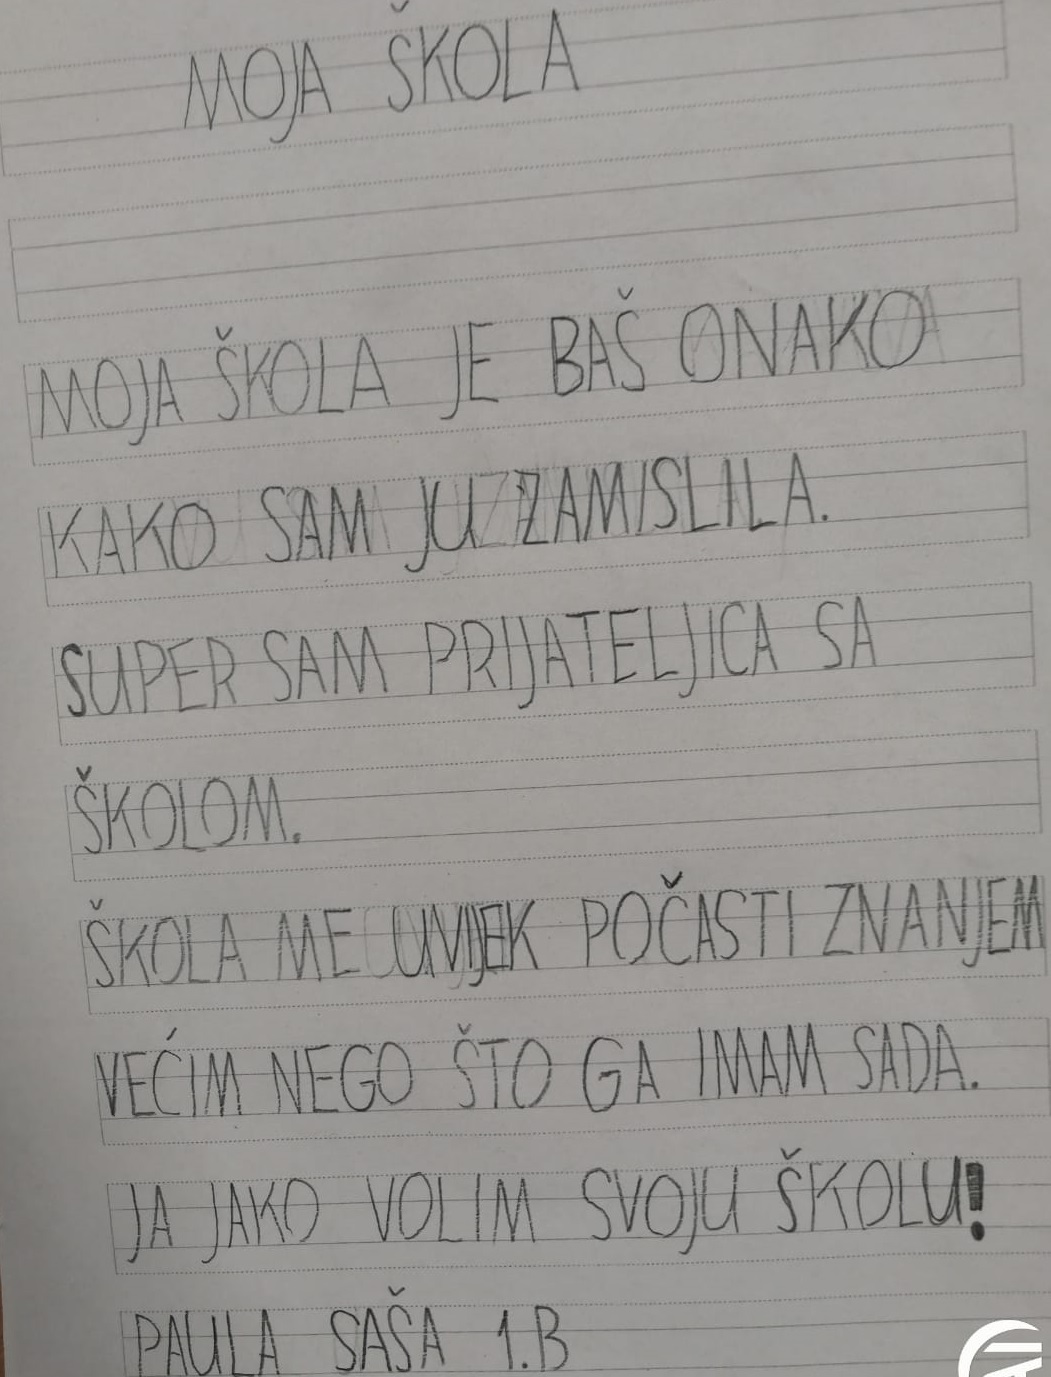 MOJA ŠKOLA
MOJA ŠKOLA JE BAŠ ONAKO
KAKO SAM JU ZAMISLILA.
SUPER SAM PRIJATELJICA SA
ŠKOLOM.
ŠKOLA ME UVIJEK POČASTI ZNANJEM
VEĆIM NEGO ŠTO GA IMAM SADA.
JA JAKO VOLIM SVOJU ŠKOLU!
PAULA SAŠA 1.B